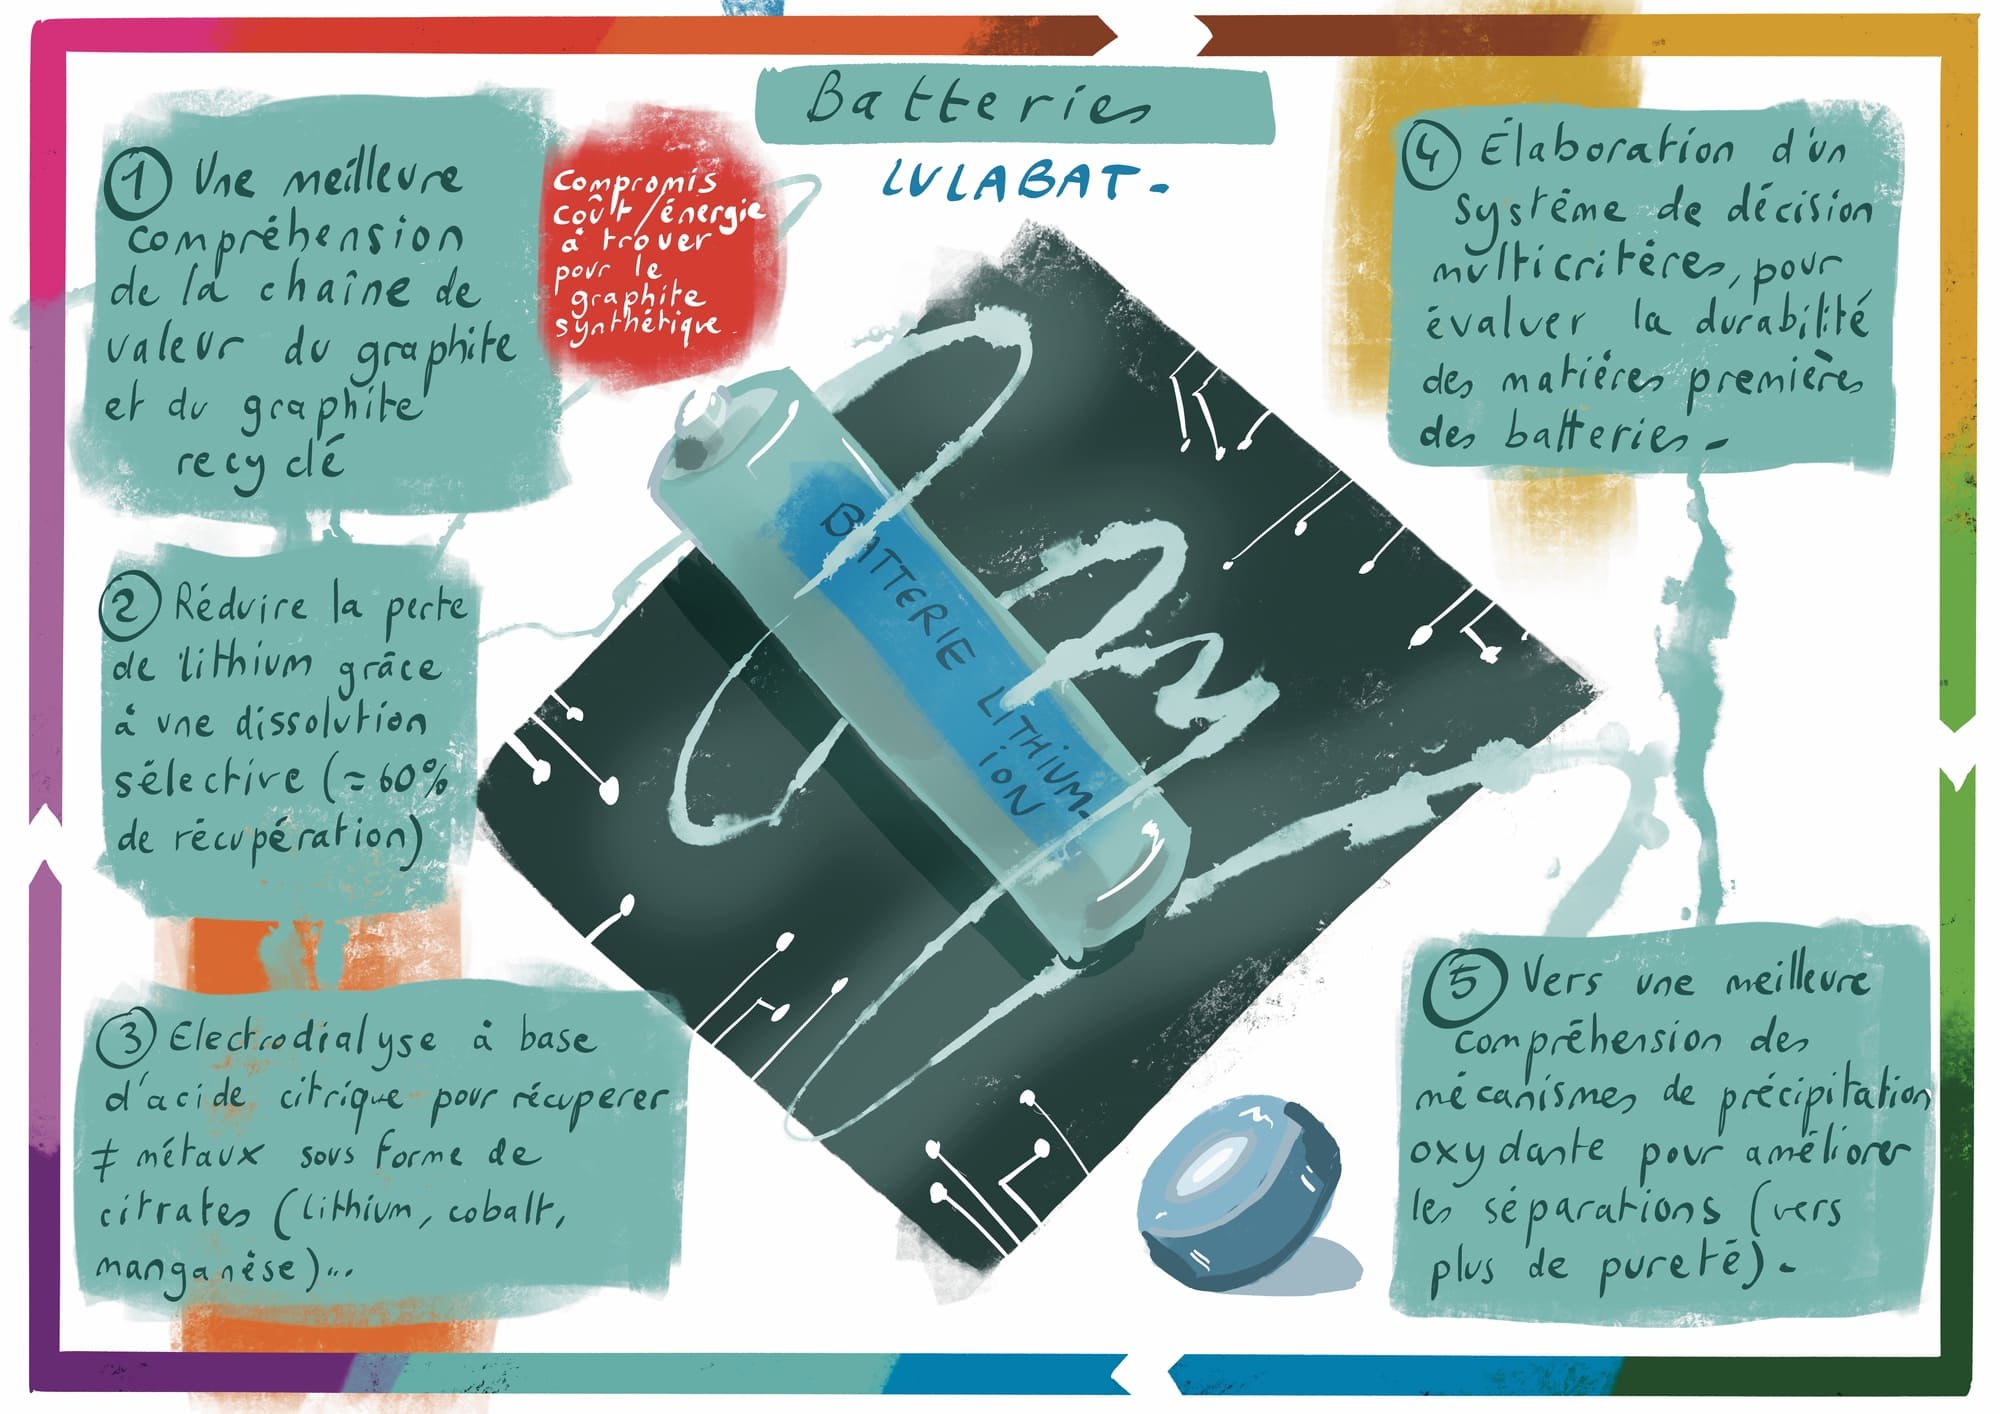 Batteries
LULABAT-
① Une meilleure
compréhension
de la chaîne de
valeur du graphite
et du graphite
recyclé
Compromis
coût/énergie
à trouver
pour le
graphite
synthétique.
② Réduire la perte
de lithium grâce
à une dissolution
sélective (≈60%
de récupération)
③ Electrodialyse à base
d'acide citrique pour récuperer
≠ métaux sous forme de
citrates (lithium, cobalt,
manganèse)...
BATTERIE LITHIUM-
ION
④ Élaboration d'un
système de décision
multicritères, pour
évaluer la durabilité
des matières premières
des batteries-
⑤ Vers une meilleure
compréhension des
mécanismes de précipitation
oxydante pour améliorer
les séparations (vers
plus de pureté).-